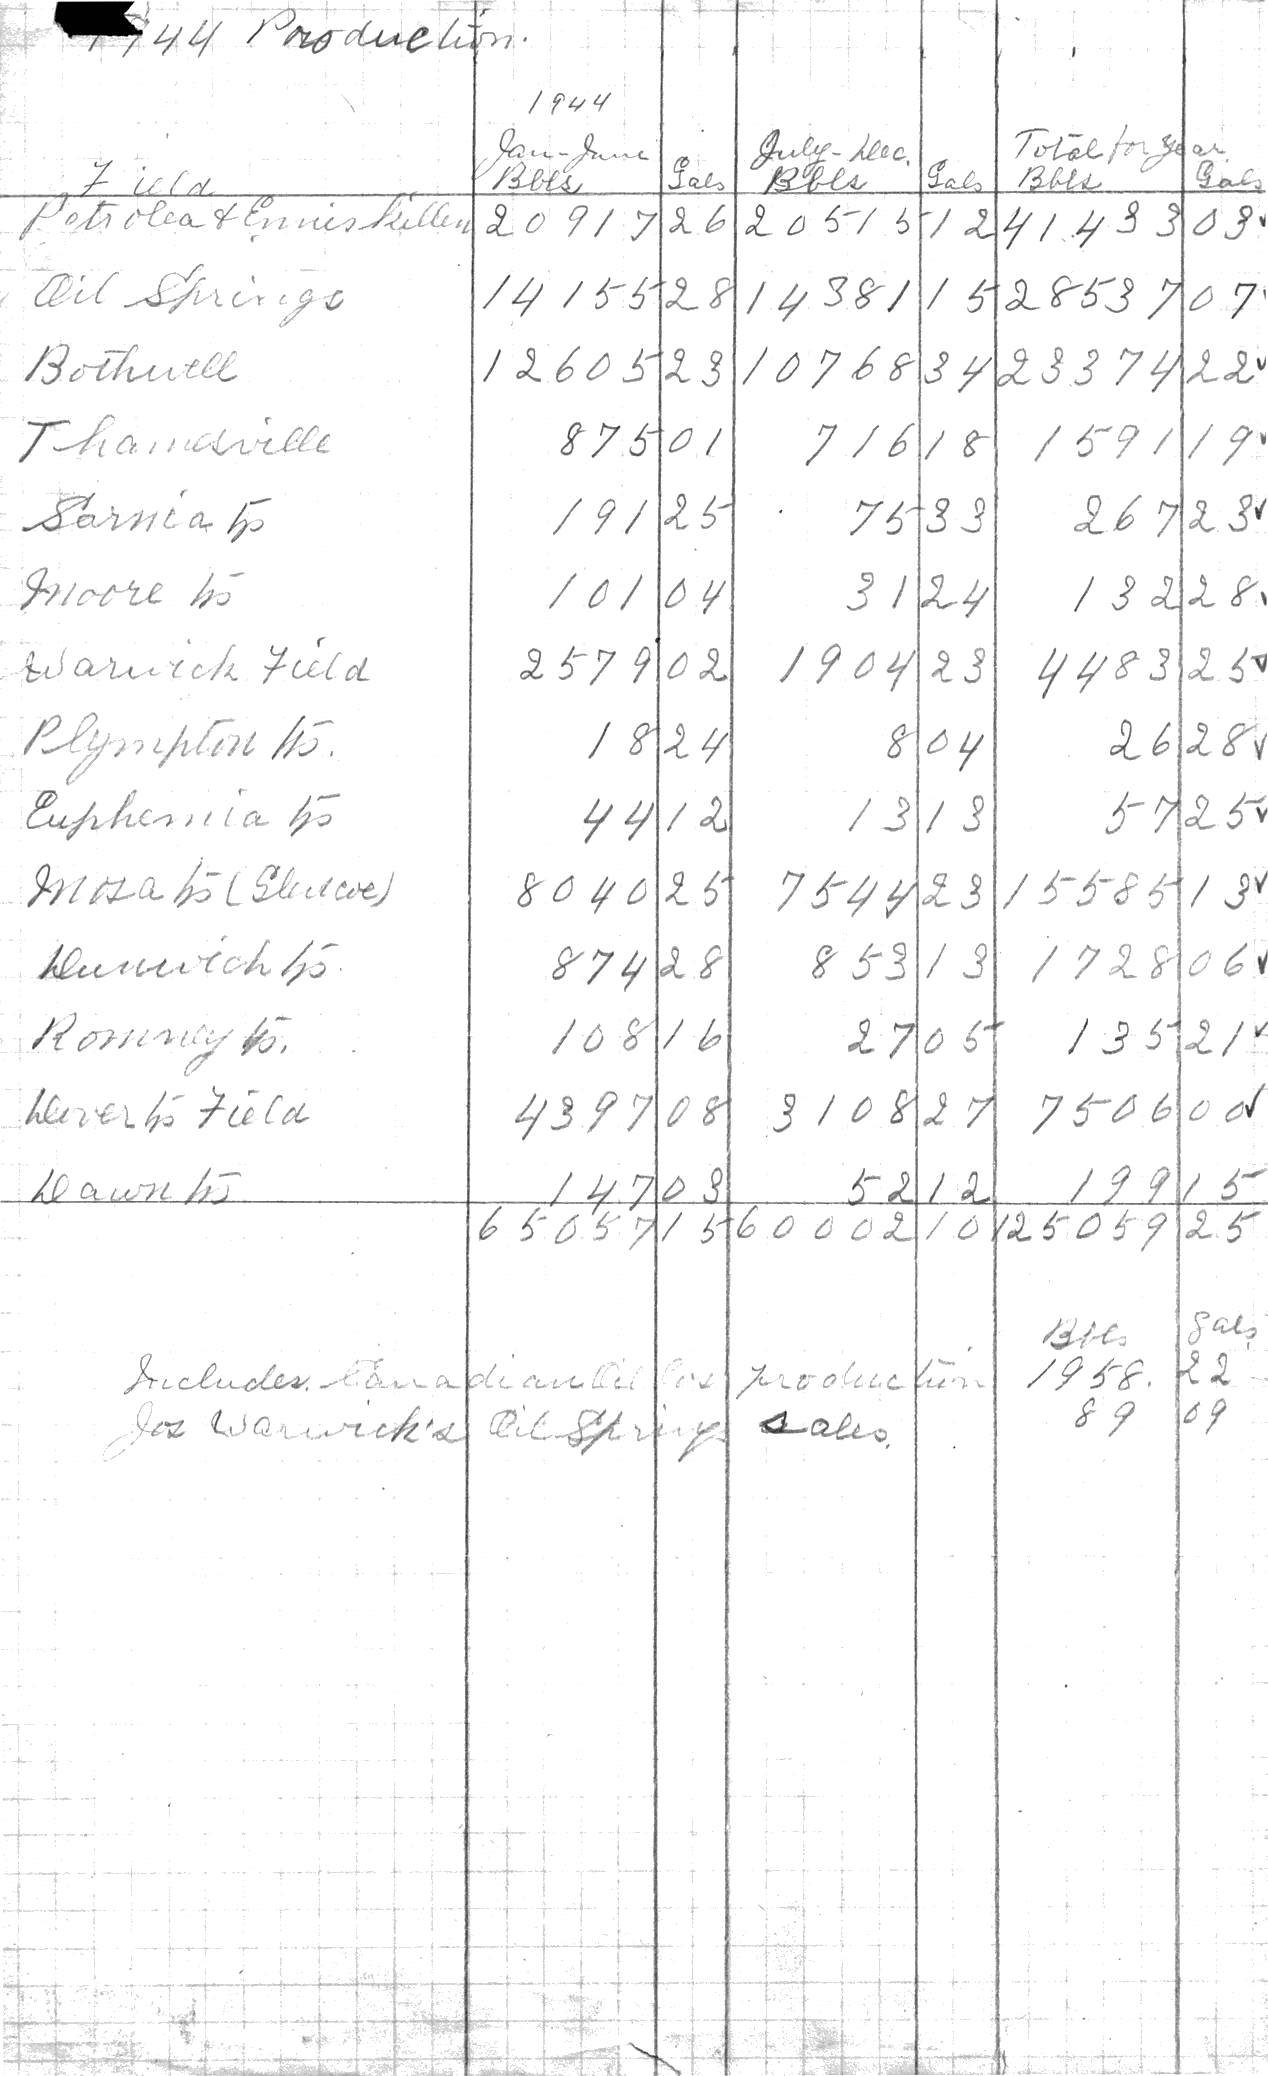 1944 Production.
1944
Jan-June July-Dec. Total for Year
Field Bbls Gals Bbls Gals Bbls Gals
Petrolea & Enniskillen 20917 26 20515 12 41433 03 ✓
Oil Springs 14155 28 14381 15 28537 07 ✓
Bothwell 12605 23 10768 34 23374 22 ✓
Thamesville 875 01 716 18 1591 19 ✓
Sarnia tp 191 25 75 33 267 23 ✓
Moore tp 101 04 31 24 132 28 ✓
Warwick Field 2579 02 1904 23 4483 25 ✓
Plympton tp. 18 24 8 04 26 28 ✓
Euphemia tp 44 12 13 13 57 25 ✓
Mosa tp (Glencoe) 8040 25 7544 23 15585 13 ✓
Dunwich tp. 874 28 853 13 1728 06 ✓
Romney tp. 108 16 27 05 135 21 ✓
Dover tp Field 4397 08 3108 27 7506 00 ✓
Dawn tp 147 03 52 12 199 15
65057 15 60002 10 125059 25
Bbls Gals
Includes. Canadian Oil Cos production 1958. 22
Jos Warwick's Oil Springs sales. 89 09